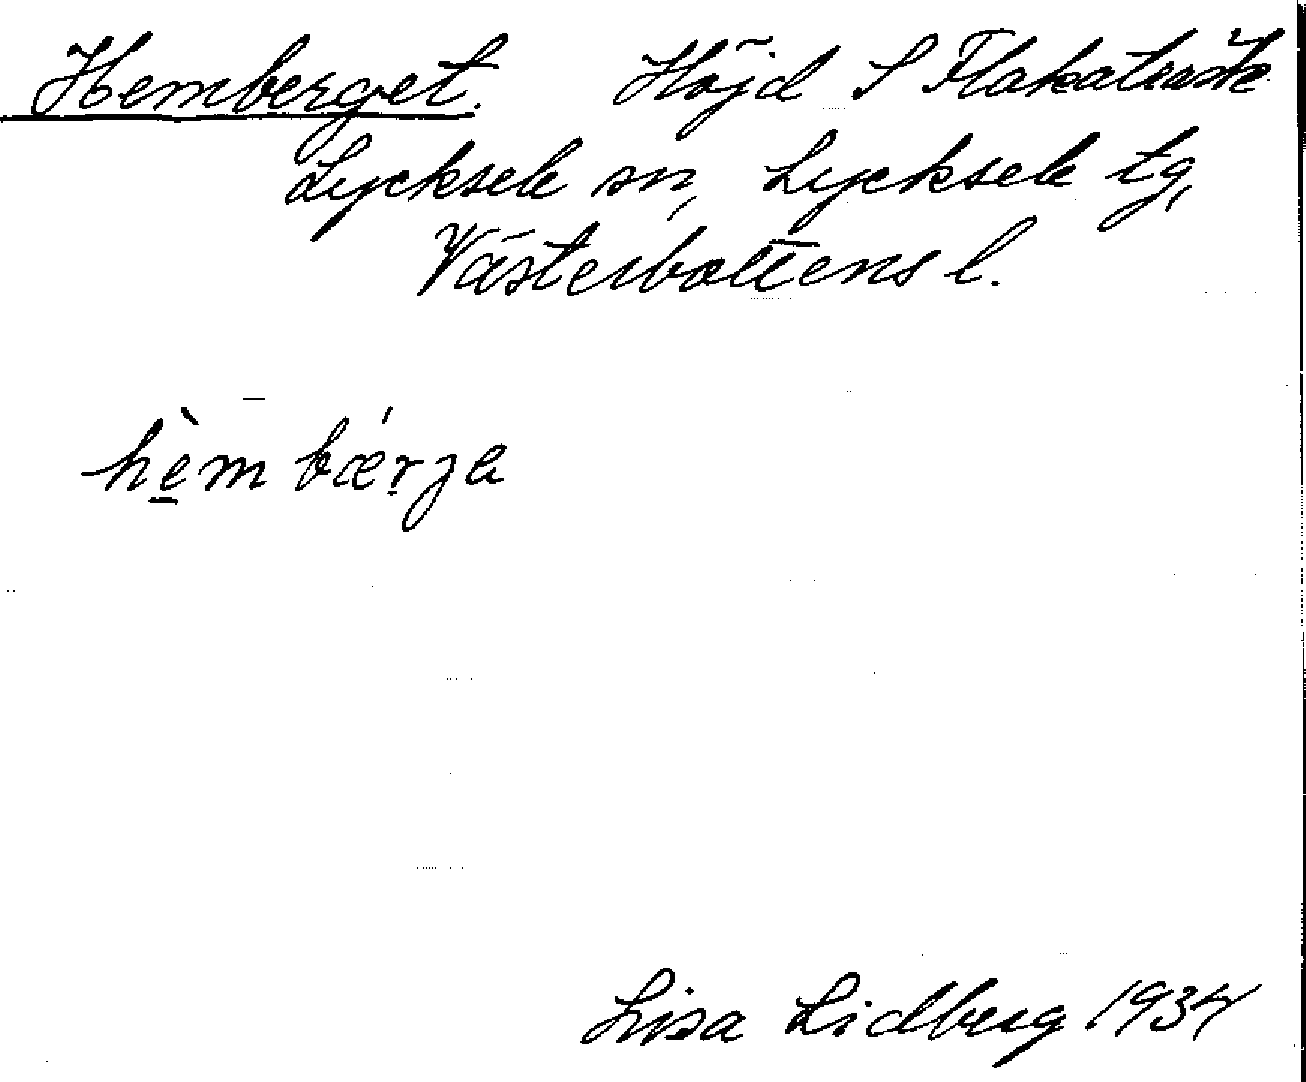 Hemberget. Höjd S Flakaträsk
Lycksele sn, Lycksele tg,
Västerbottens l.
hèm bǽrʒa
Lisa Lidberg 1934